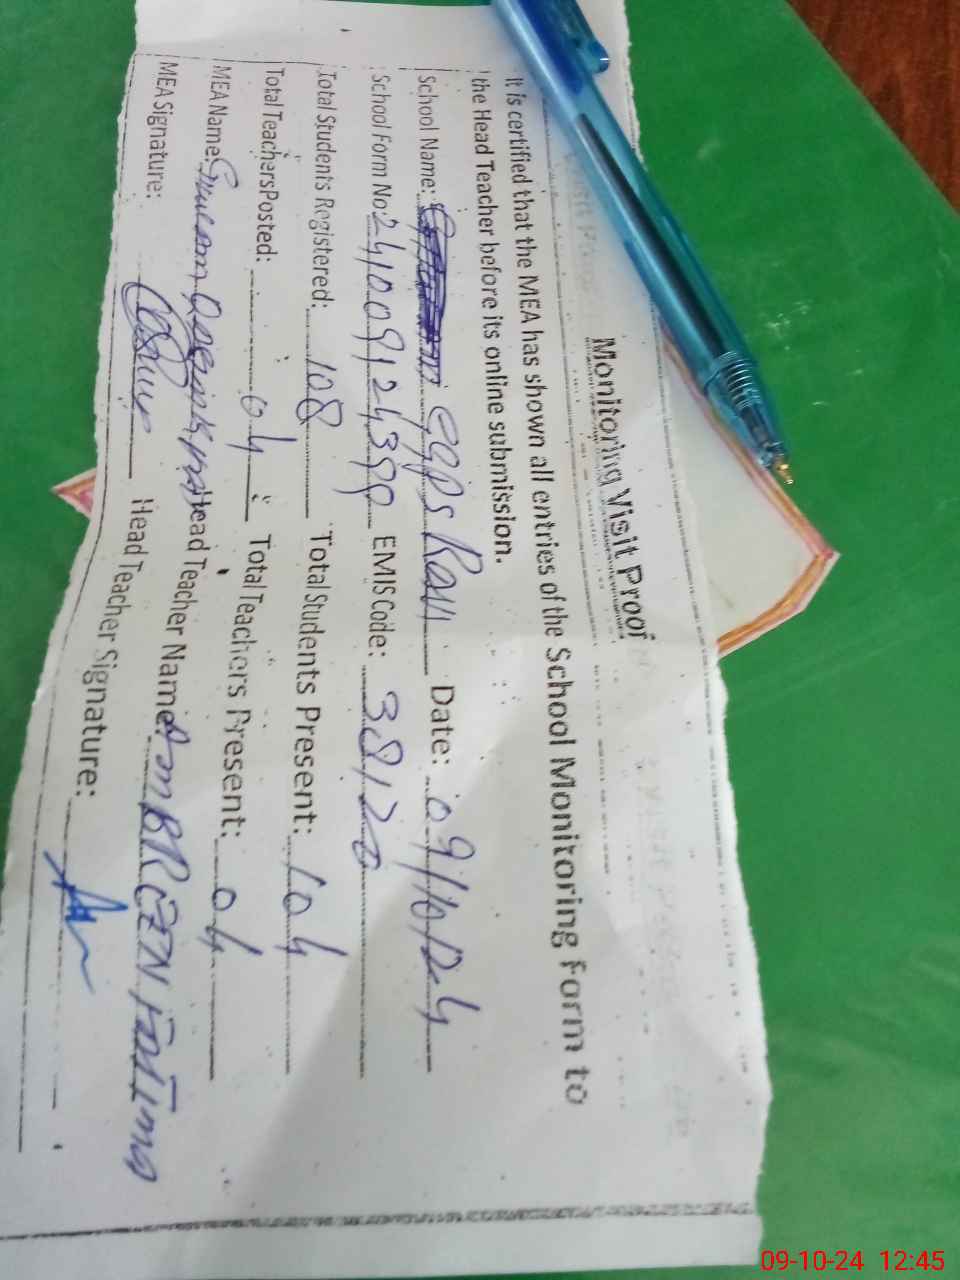 Monitoring Visit Proof
It is certified that the MEA has shown all entries of the School Monitoring Form to
the Head Teacher before its online submission.
School Name: GGPS Date: 09/10/24
School Form No: 2410091243 EMIS Code: 38120
Total Students Registered: 108 Total Students Present: 104
Total Teachers Posted: 04 Total Teachers Present: 04
MEA Name: Head Teacher Name: AmBREEN Fatima
MEA Signature: Head Teacher Signature:
09-10-24 12:45